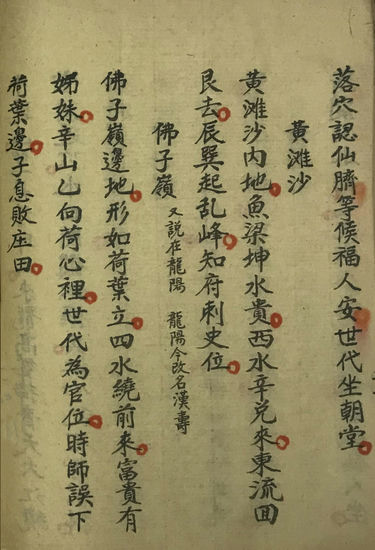 落穴認仙臍等候福人安世代坐朝堂
黄滩沙
黄滩沙内地魚梁坤水貴西水辛兑來東流囬
艮去辰巽起乱峰知府刺史位
佛子嶺 又説在龍陽 龍陽今改名漢壽
佛子嶺邊地形如荷葉立四水繞前來富貴有
姊妹辛山乙向荷心裡世代為官位時師誤下
荷葉邊子息敗庄田